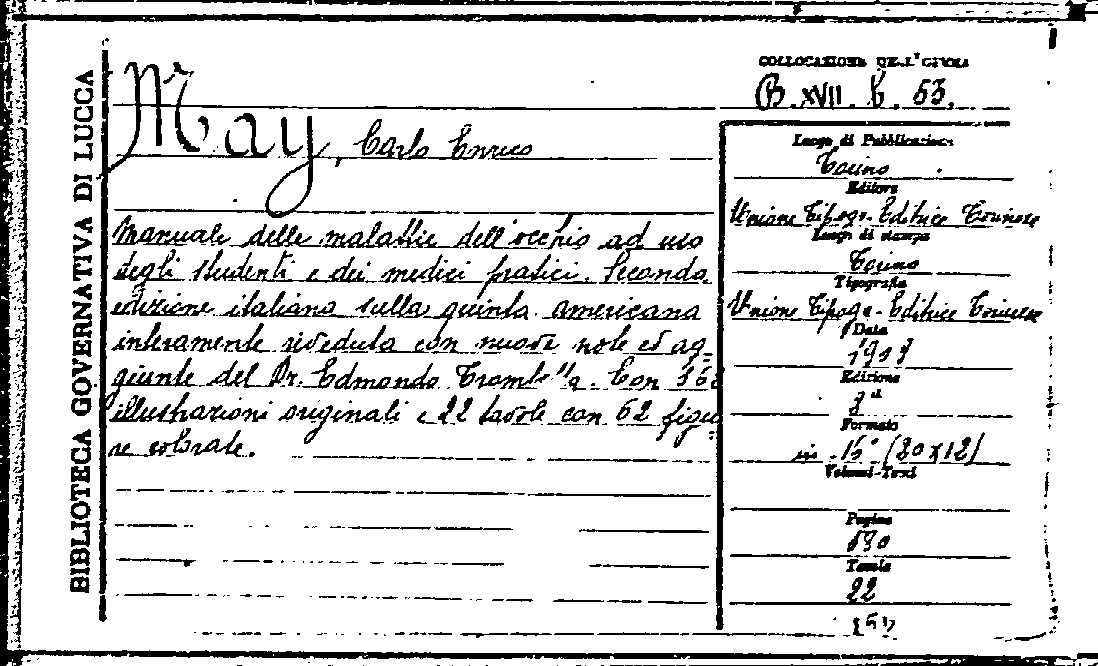 BIBLIOTECA GOVERNATIVA DI LUCCA
COLLOCAZIONE DELL'OPERA
B. XVII. b. 53.
May, Carlo Enrico
Manuale delle malattie dell'occhio ad uso
degli studenti e dei medici pratici. Seconda
edizione italiana sulla quinta americana
interamente riveduta con nuove note ed ag-
giunte del Dr. Edmondo Trombetta. Con
illustrazioni originali e 22 tavole con 62 figu-
re colorate.
Luogo di Pubblicazione
Torino
Editore
Unione Tipogr. Editrice Torinese
Luogo di stampa
Torino
Tipografia
Unione Tipogr. Editrice Torinese
Data
Edizione
Formato
in 16° (20x12)
Volumi-Tomi
Pagine
Tavole
22